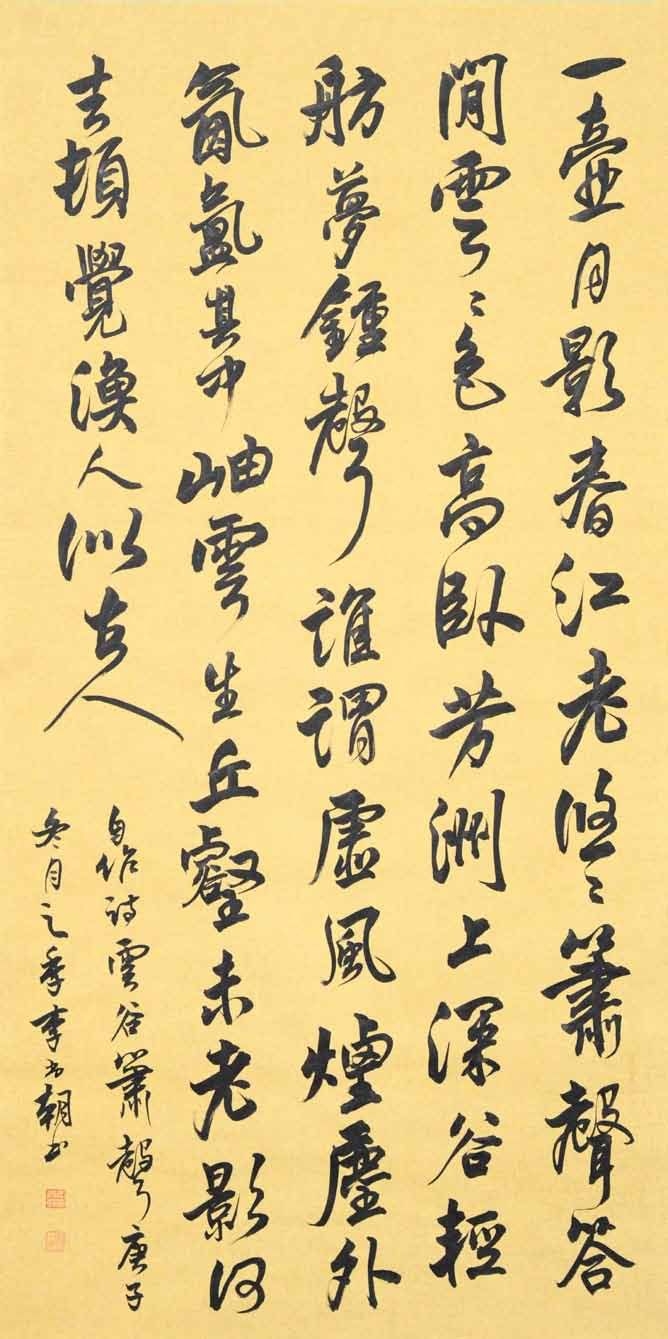 一壺月影春江老悠〻簫聲答
閒雲〻色高臥芳洲上深谷輕
舫夢鍾聲誰謂虛風煙塵外
氤氳其中岫雲生丘壑未老影何
去頓覺漁人似古人
自作詩雲谷簫聲庚子
冬月之季李朝书